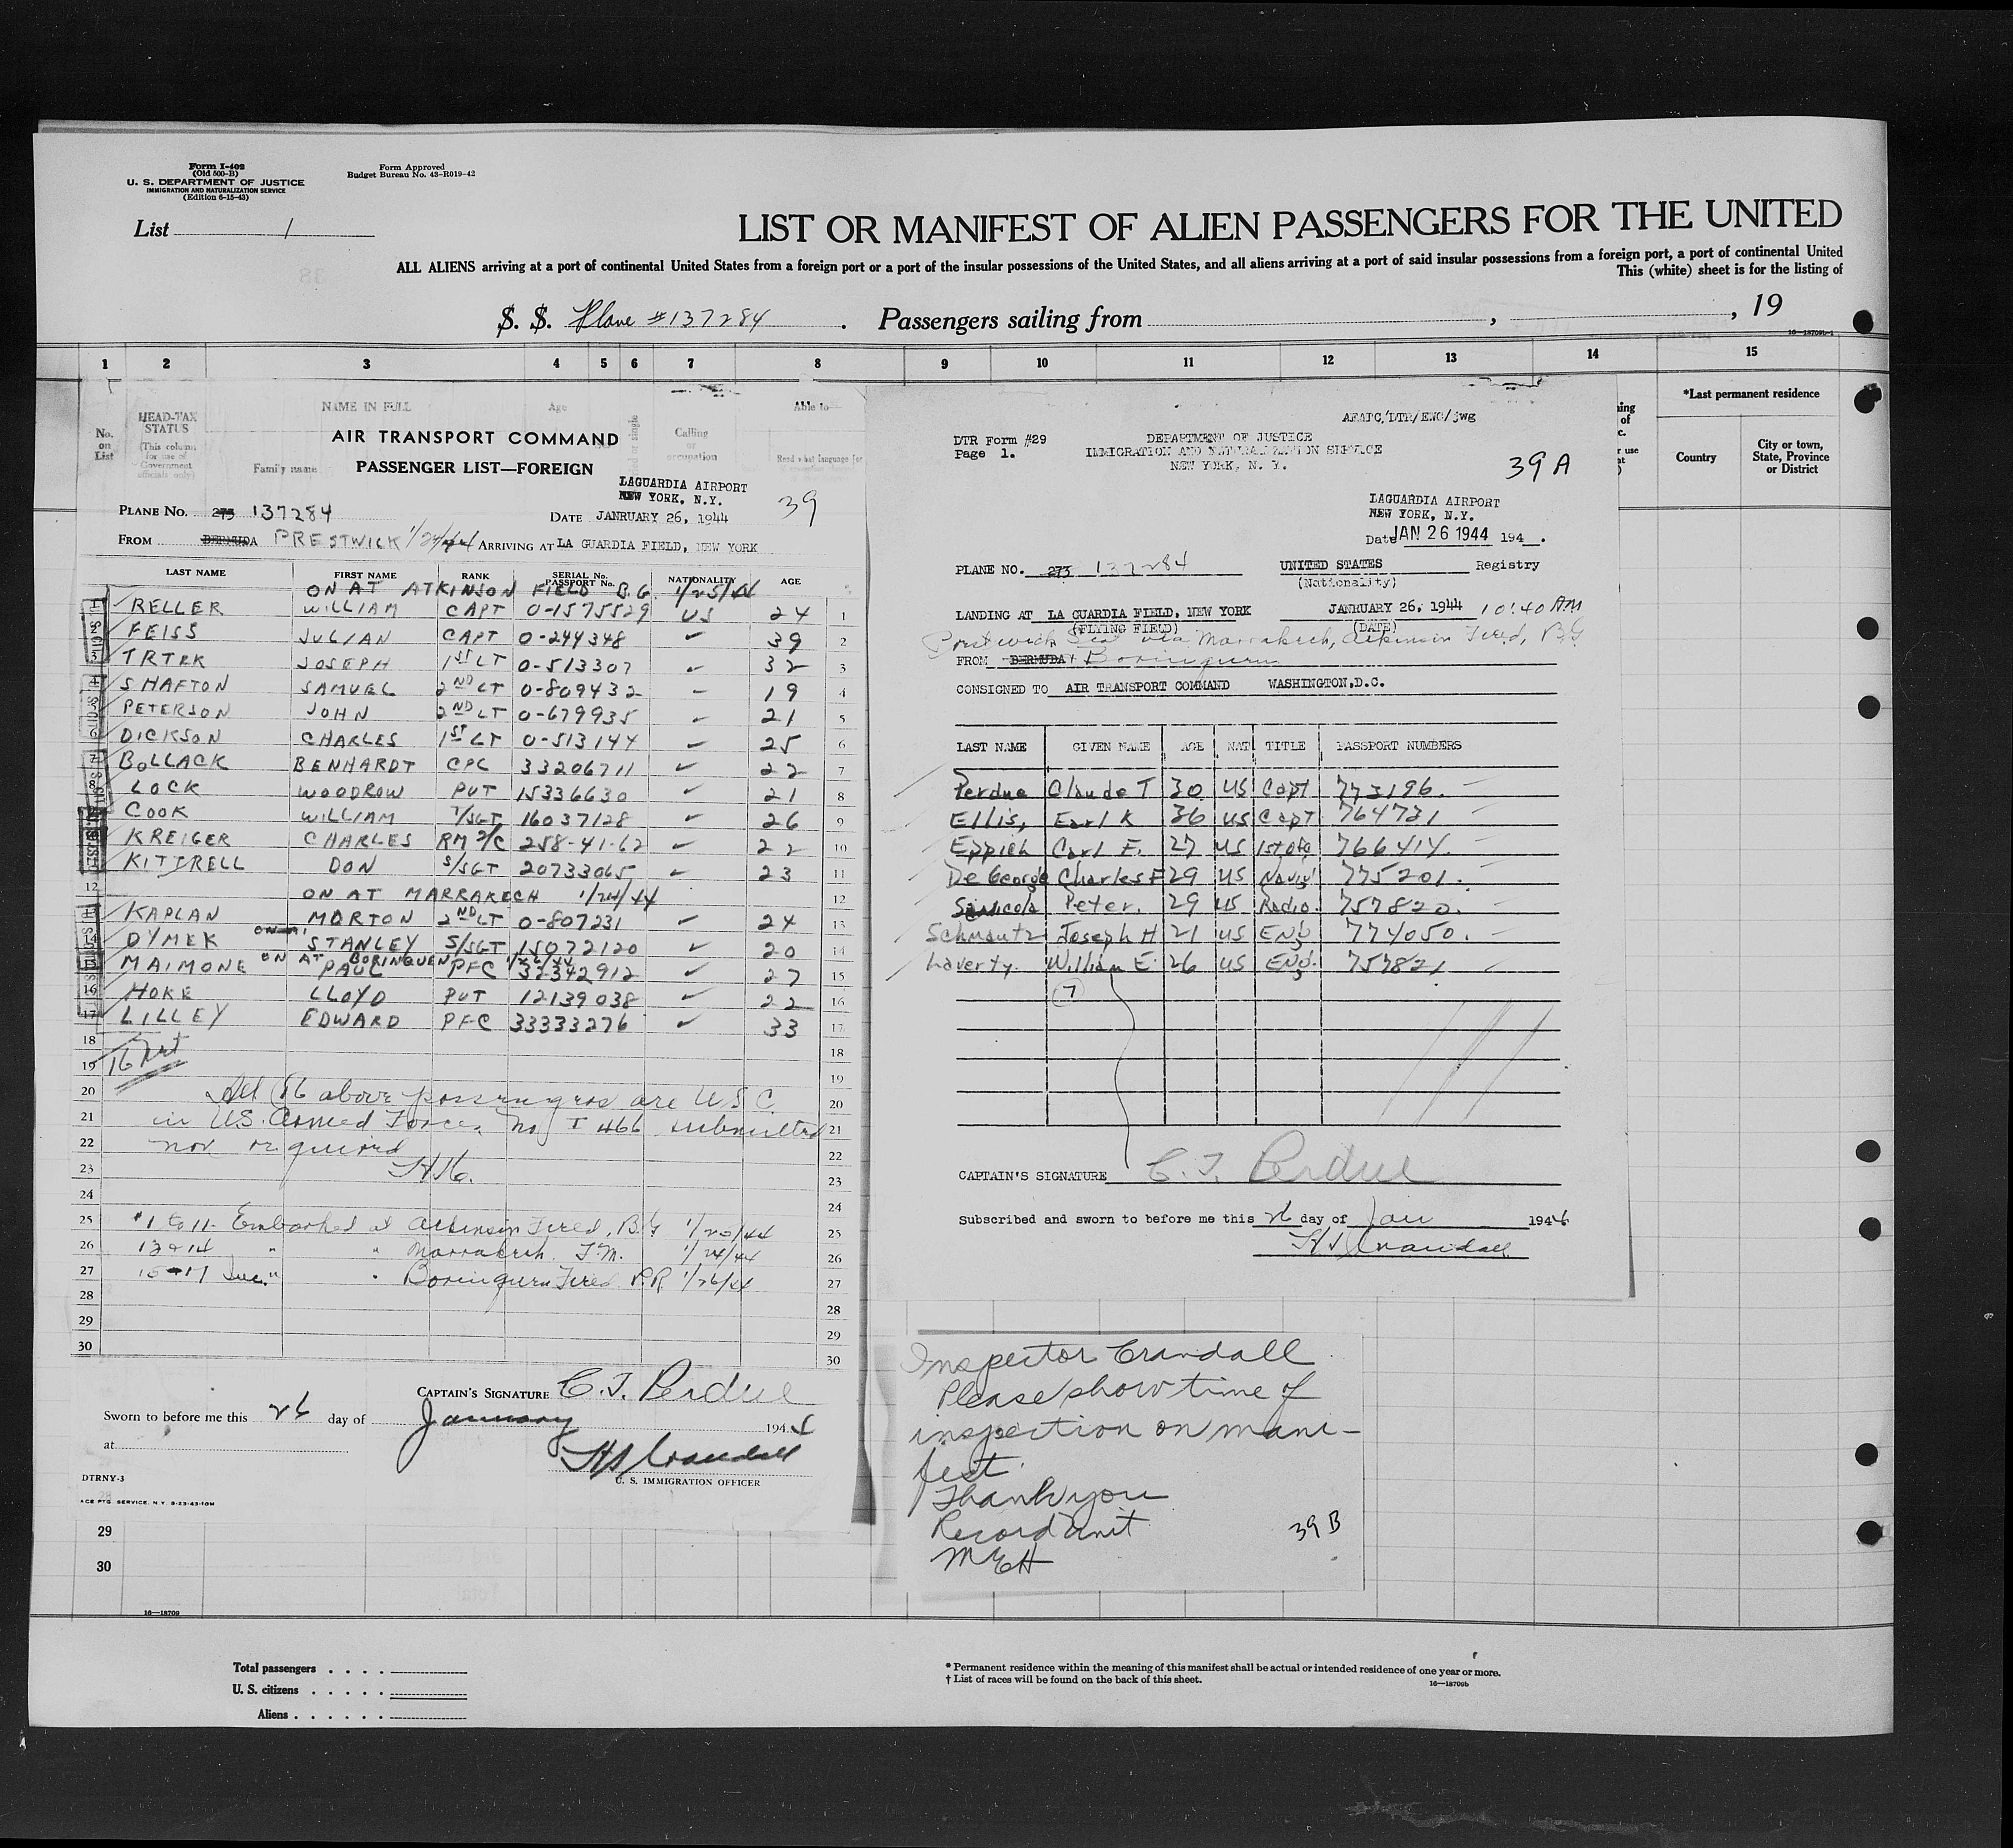 Form I-402
(Old 500-B)
U. S. DEPARTMENT OF JUSTICE
IMMIGRATION AND NATURALIZATION SERVICE
(Edition 6-15-43)
Form Approved
Budget Bureau No. 43-R019-42
List 1
LIST OR MANIFEST OF ALIEN PASSENGERS FOR THE UNITED
ALL ALIENS arriving at a port of continental United States from a foreign port or a port of the insular possessions of the United States, and all aliens arriving at a port of said insular possessions from a foreign port, a port of continental United
This (white) sheet is for the listing of
S. S. Plane #137284 . Passengers sailing from , , 19
16—18709b-1
1 2 3 4 5 6 7 8 9 10 11 12 13 14 15
No. on List
HEAD-TAX STATUS
(This column for use of Government officials only)
NAME IN FULL
Family name
Age
Calling or occupation
Able to
Read what language
AIR TRANSPORT COMMAND
PASSENGER LIST—FOREIGN
LAGUARDIA AIRPORT
NEW YORK, N.Y.
39
PLANE NO. 273 137284 DATE JANRUARY 26, 1944
FROM BERMUDA PRESTWICK 1/24/44 ARRIVING AT LA GUARDIA FIELD, NEW YORK
LAST NAME FIRST NAME RANK SERIAL No. PASSPORT No. NATIONALITY AGE
ON AT ATKINSON FIELD B.G. 1/25/44
1 RELLER WILLIAM CAPT 0-1575529 US 24 1
FEISS JULIAN CAPT 0-244348 ✓ 39 2
3 TRTEK JOSEPH 1ST LT 0-513307 ✓ 32 3
4 SHAFTON SAMUEL 2ND LT 0-809432 – 19 4
PETERSON JOHN 2ND LT 0-679935 ✓ 21 5
6 DICKSON CHARLES 1ST LT 0-513144 ✓ 25 6
7 BOLLACK BENHARDT CPL 33206711 ✓ 22 7
8 LOCK WOODROW PVT 15336630 ✓ 21 8
COOK WILLIAM T/SGT 16037128 ✓ 26 9
KREIGER CHARLES RM 2/C 258-41-62 ✓ 22 10
KITTRELL DON S/SGT 20733065 ✓ 23 11
12 ON AT MARRAKECH 1/24/44 12
KAPLAN MORTON 2ND LT 0-807231 ✓ 24 13
14 DYMEK STANLEY S/SGT 15072120 ✓ 20 14
ON AT BORINQUEN 1/26/44
15 MAIMONE PAUL PFC 32342912 ✓ 27 15
16 HOKE LLOYD PVT 12139038 ✓ 22 16
17 LILLEY EDWARD PFC 33333276 ✓ 33 17
18 18
19 16 19
20 All 16 above passengers are USC 20
21 in U.S. Armed Forces. No I 466 submitted 21
22 nor required 22
23 23
24 24
25 #1 to 11 Embarked at Atkinson Field, B.G 1/25/44 25
26 13 & 14 " " Marrakech F.M. 1/24/44 26
27 15-17 Inc. " " Borinquen Field P.R. 1/26/44 27
28 28
29 29
30 30
CAPTAIN'S SIGNATURE C. T. Perdue
Sworn to before me this 26 day of January 1944
at
H S Crandall
U. S. IMMIGRATION OFFICER
DTRNY-3
ACE PTG. SERVICE. N.Y. 8-23-43-10M
29
30
16—18709
AFATC/DTR/ENG/jwg
DTR Form #29
Page 1.
DEPARTMENT OF JUSTICE
IMMIGRATION AND NATURALIZATION SERVICE
NEW YORK, N. Y.
39 A
LAGUARDIA AIRPORT
NEW YORK, N.Y.
Date JAN 26 1944 194 .
PLANE NO. 273 137284 UNITED STATES Registry
(Nationality)
LANDING AT LA GUARDIA FIELD, NEW YORK JANRUARY 26, 1944 10:40 AM
(FLYING FIELD) (DATE)
Prestwick Scot via Marrakech, Atkinson Field, B.G
FROM BERMUDA + Borinquen
CONSIGNED TO AIR TRANSPORT COMMAND WASHINGTON,D.C.
LAST NAME GIVEN NAME AGE NAT TITLE PASSPORT NUMBERS
Perdue Claude T 30 US Capt 773196.
Ellis, Earl K 36 US Capt 764731
Eppich Carl F. 27 US 1st ofo 766414.
De George Charles F 29 US Navig' 775201.
Peter. 29 US Radio. 757820.
Schmautz Joseph H 21 US Eng 774050.
Laverty. William E. 26 US Eng. 757821
7
CAPTAIN'S SIGNATURE C. T. Perdue
Subscribed and sworn to before me this 26 day of Jan 1944
H S Crandall
Inspector Crandall
Please show time of
inspection on mani-
fest.
Thank you
Record Unit
MEH
39 B
*Last permanent residence
Country
City or town, State, Province or District
Total passengers . . . .
U. S. citizens . . . . .
Aliens . . . . . .
* Permanent residence within the meaning of this manifest shall be actual or intended residence of one year or more.
† List of races will be found on the back of this sheet.
16—18709b